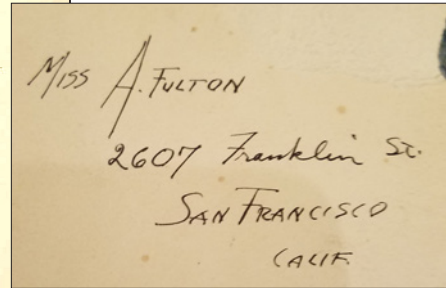 Miss A. Fulton
2607 Franklin St.
San Francisco
Calif.